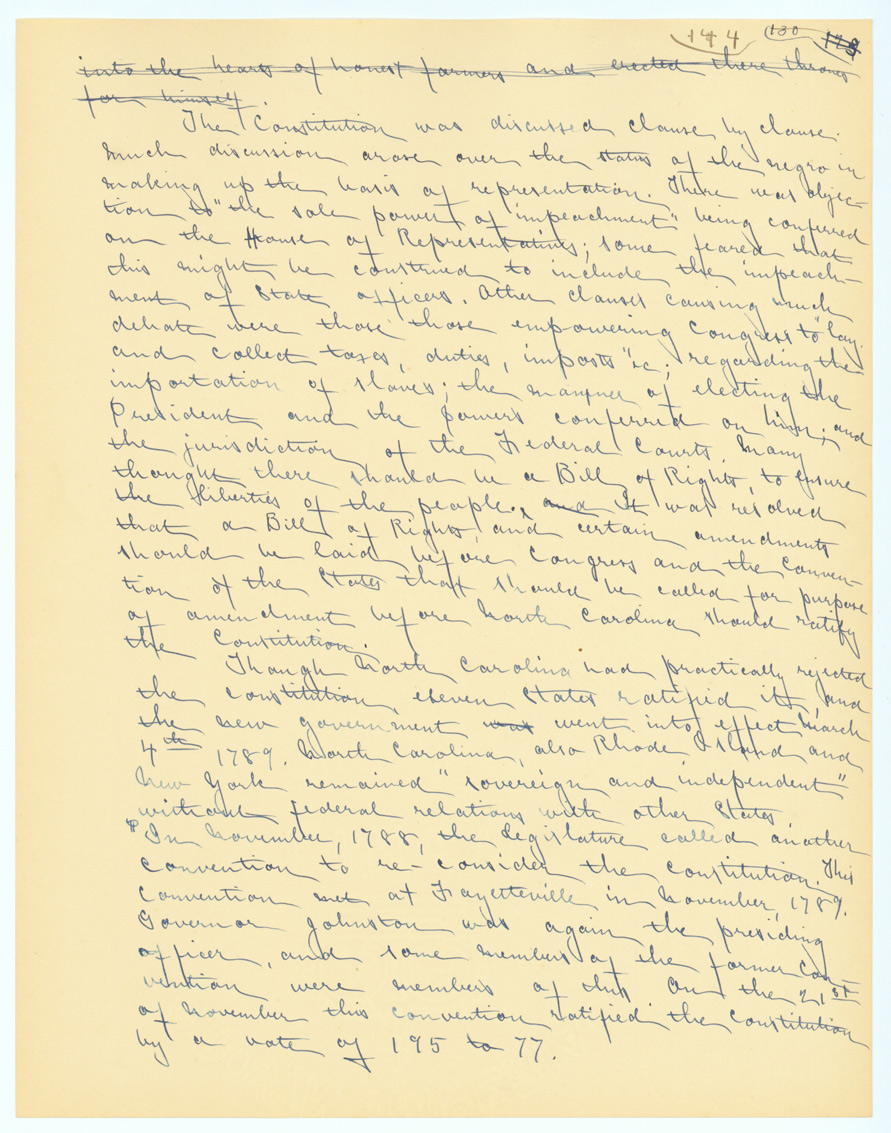 144 130 129
into the hearts of honest farmers and erected there thrones
for himself.
The Constitution was discussed clause by clause.
Much discussion arose over the status of the negro in
making up the basis of representation. There was objec-
tion to "the sole power of impeachment" being conferred
on the House of Representatives; some feared that
this might be construed to include the impeach-
ment of State officers. Other clauses causing much
debate were those those empowering Congress "to lay
and collect taxes, duties, imposts" &c; regarding the
importation of slaves; the manner of electing the
President and the powers conferred on him; and
the jurisdiction of the Federal Courts. Many
thought there should be a Bill of Rights, to ensure
the liberties of the people. and It was resolved
that a Bill of Rights, and certain amendments
should be laid before Congress and the Conven-
tion of the States that should be called for purpose
of amendment before North Carolina should ratify
the Constitution.
Though North Carolina had practically rejected
the constitution, eleven States ratified it, and
the new government was went into effect March
4th 1789. North Carolina, also Rhode Island and
New York remained "sovereign and independent"
without federal relations with other States.
¶ In November, 1788, the legislature called another
convention to re-consider the constitution. This
convention met at Fayetteville in November, 1789.
Governor Johnston was again the presiding
officer, and some members of the former Con-
vention were members of this On the 21st
of November this convention ratified the Constitution
by a vote of 195 to 77.